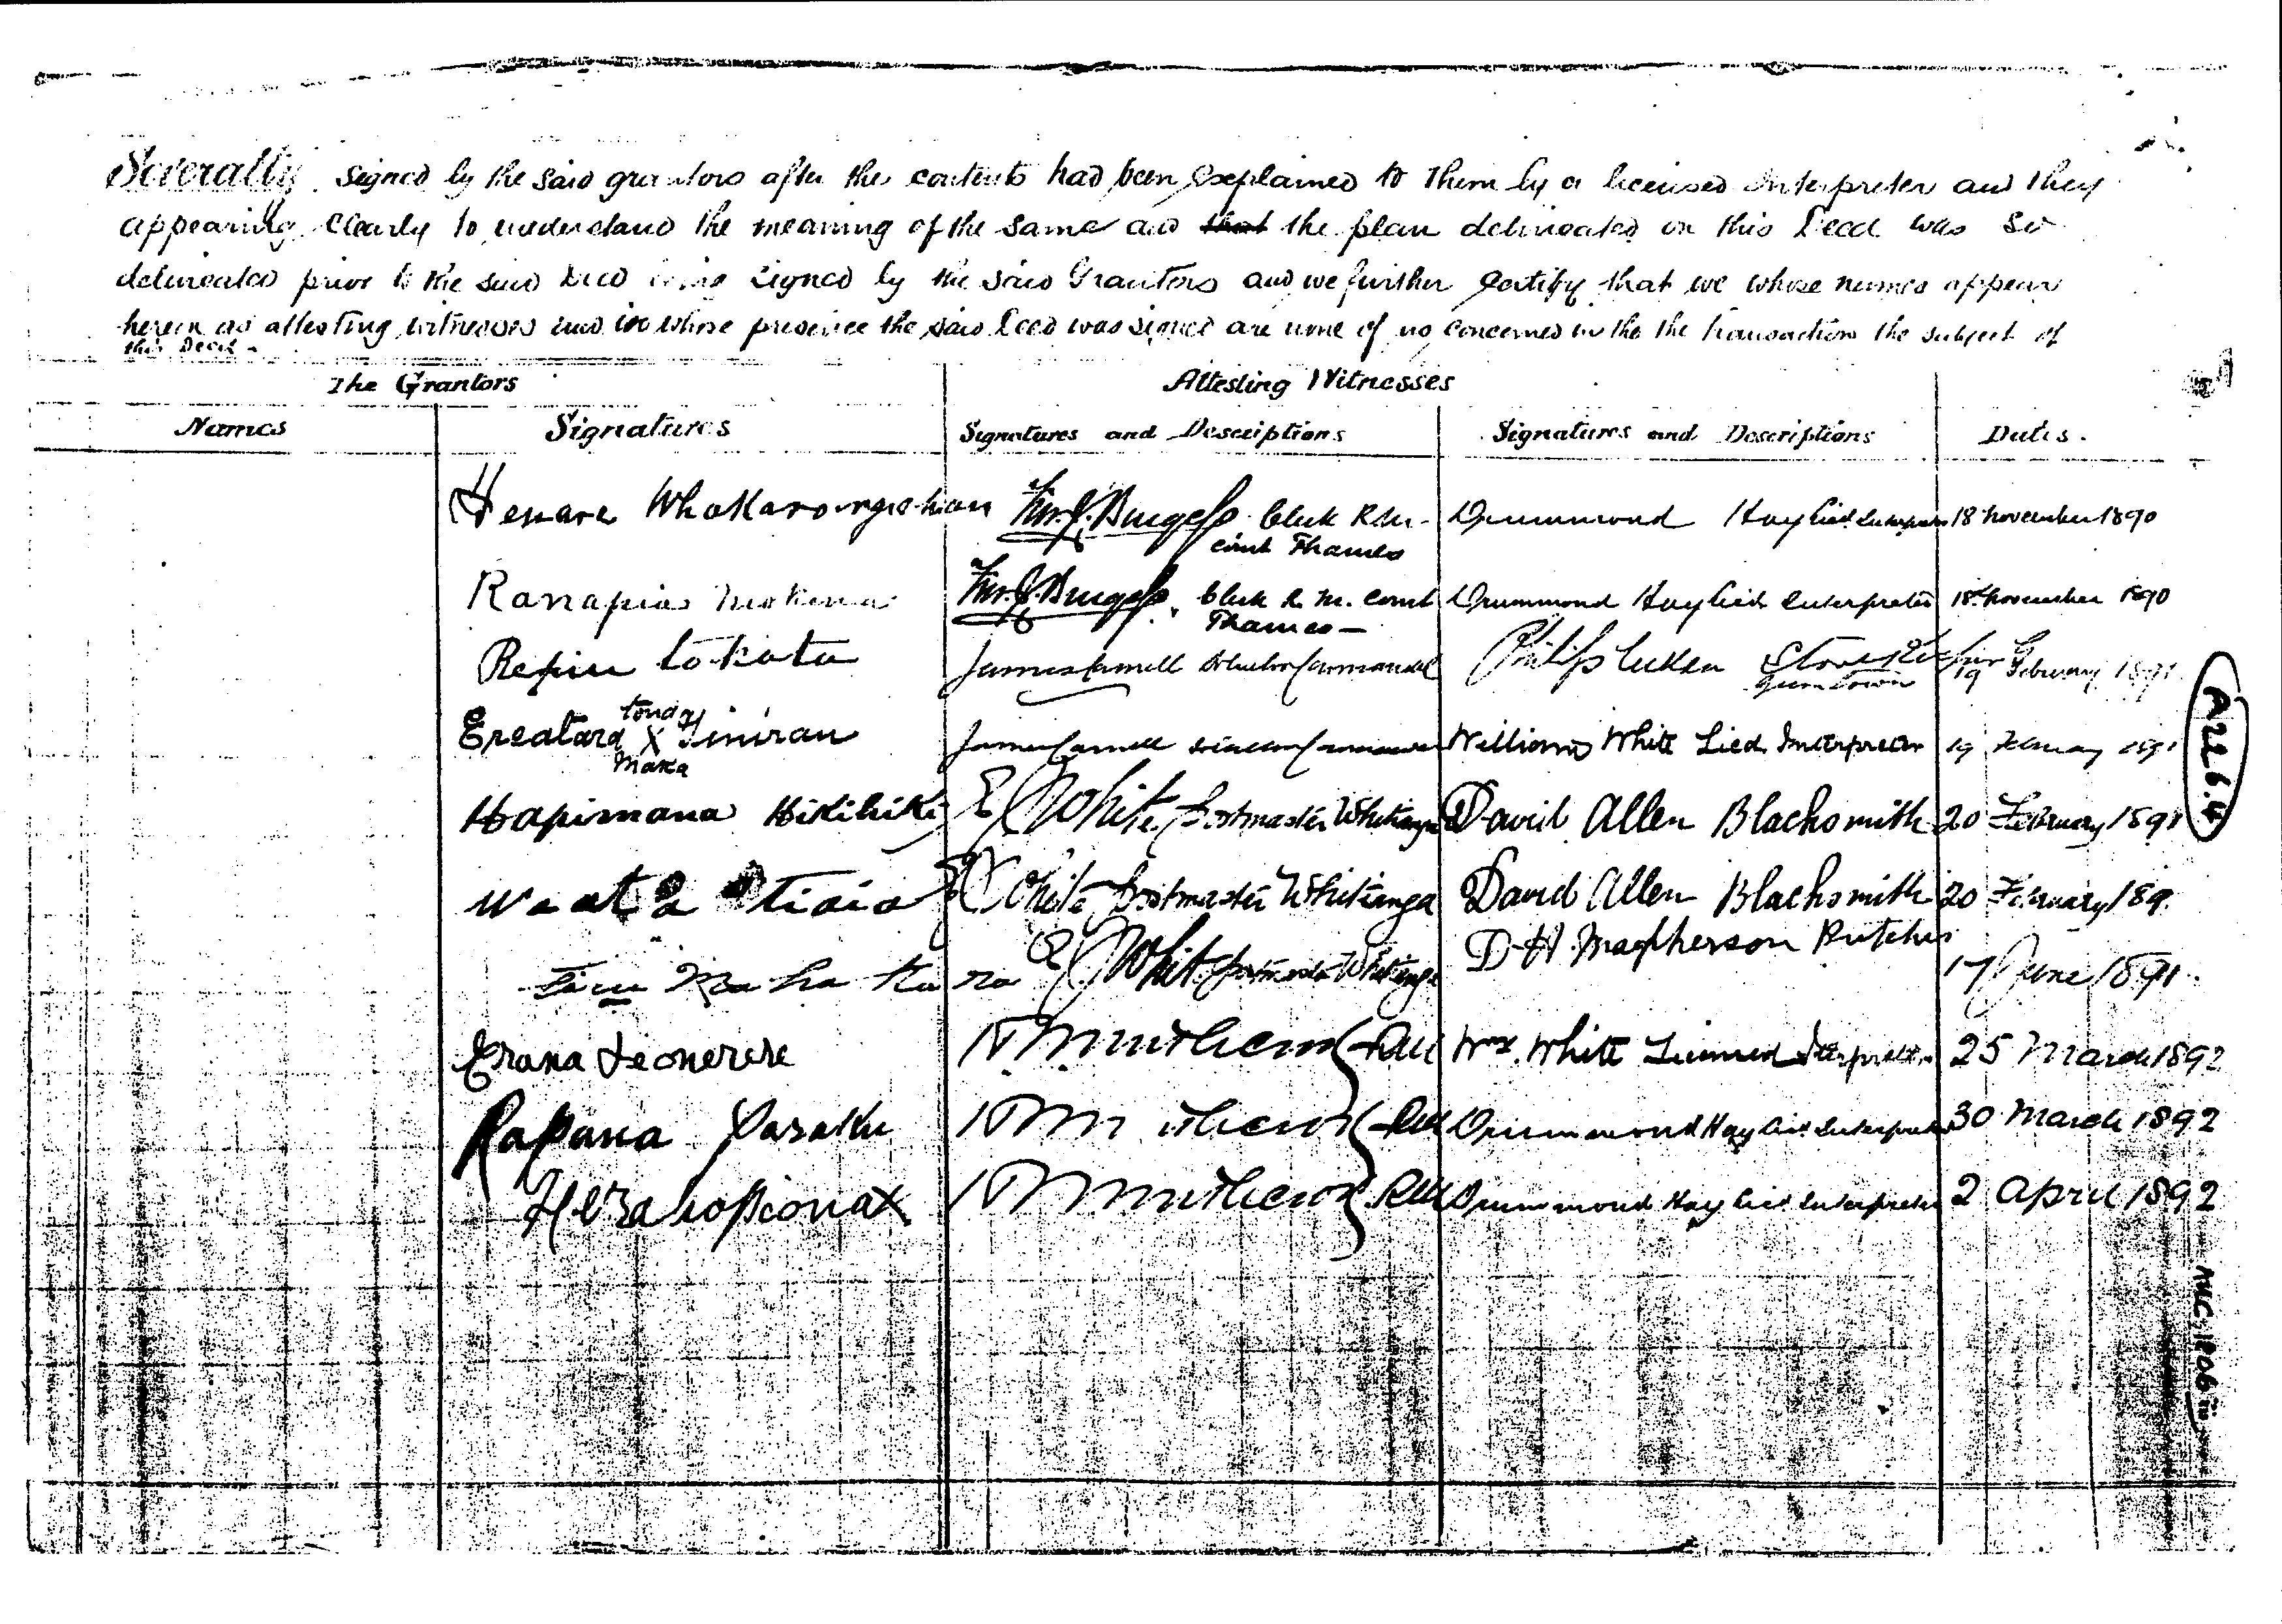 Severally signed by the said grantors after the contents had been explained to them by a licensed Interpreter and they
appearing clearly to understand the meaning of the same and that the plan delineated on this Deed was so
delineated prior to the said Deed being signed by the said Grantors and we further certify that we whose names appear
herein as attesting witnesses and in whose presence the said Deed was signed are none of us concerned in the the transaction the subject of
this Deed -
The Grantors Attesting Witnesses
Names Signatures Signatures and Descriptions Signatures and Descriptions Dates.
Henare Wm. J. Burgess Clerk R.M. Drummond Hay Licd. Interpreter 18 November 1890
Court Thames
Ranapia Mokena Wm. J. Burgess Clerk R. M. Court Drummond Hay Licd Interpreter 18th November 1890
Thames —
Repiu tokatu James Carnell Philip 19 February 1891
Gumtown
tona
X James Carnell William White Licd Interpreter 19 February 1891
maka
Hapimana Hikihiki E White Postmaster Whitianga David Allen Blacksmith 20 February 1891
E White Postmaster Whitianga David Allen Blacksmith 20 February 189
E White Postmaster Whitianga D H Macpherson Butcher 17 June 1891
Erana Wm. White Licensed Interpreter 25 March 1892
Rapana Drummond Hay Licd Interpreter 30 March 1892
Drummond Hay Licd Interpreter 2 April 1892
A226.4